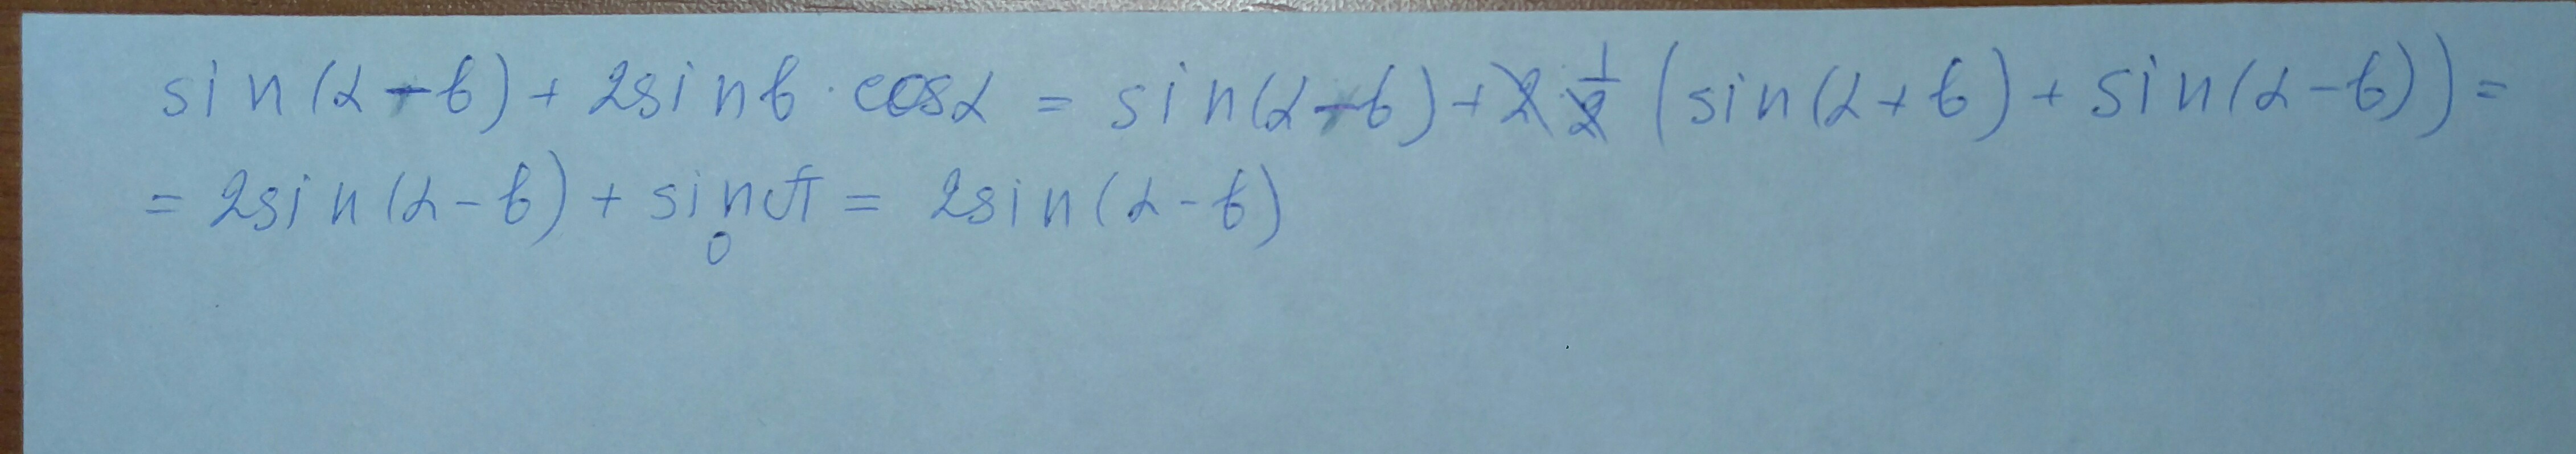 sin(α-β)+2sinβ·cosα = sin(α-β)+2·1/2(sin(α+β)+sin(α-β))=
=2sin(α-β)+sinπ = 2sin(α-β)
0